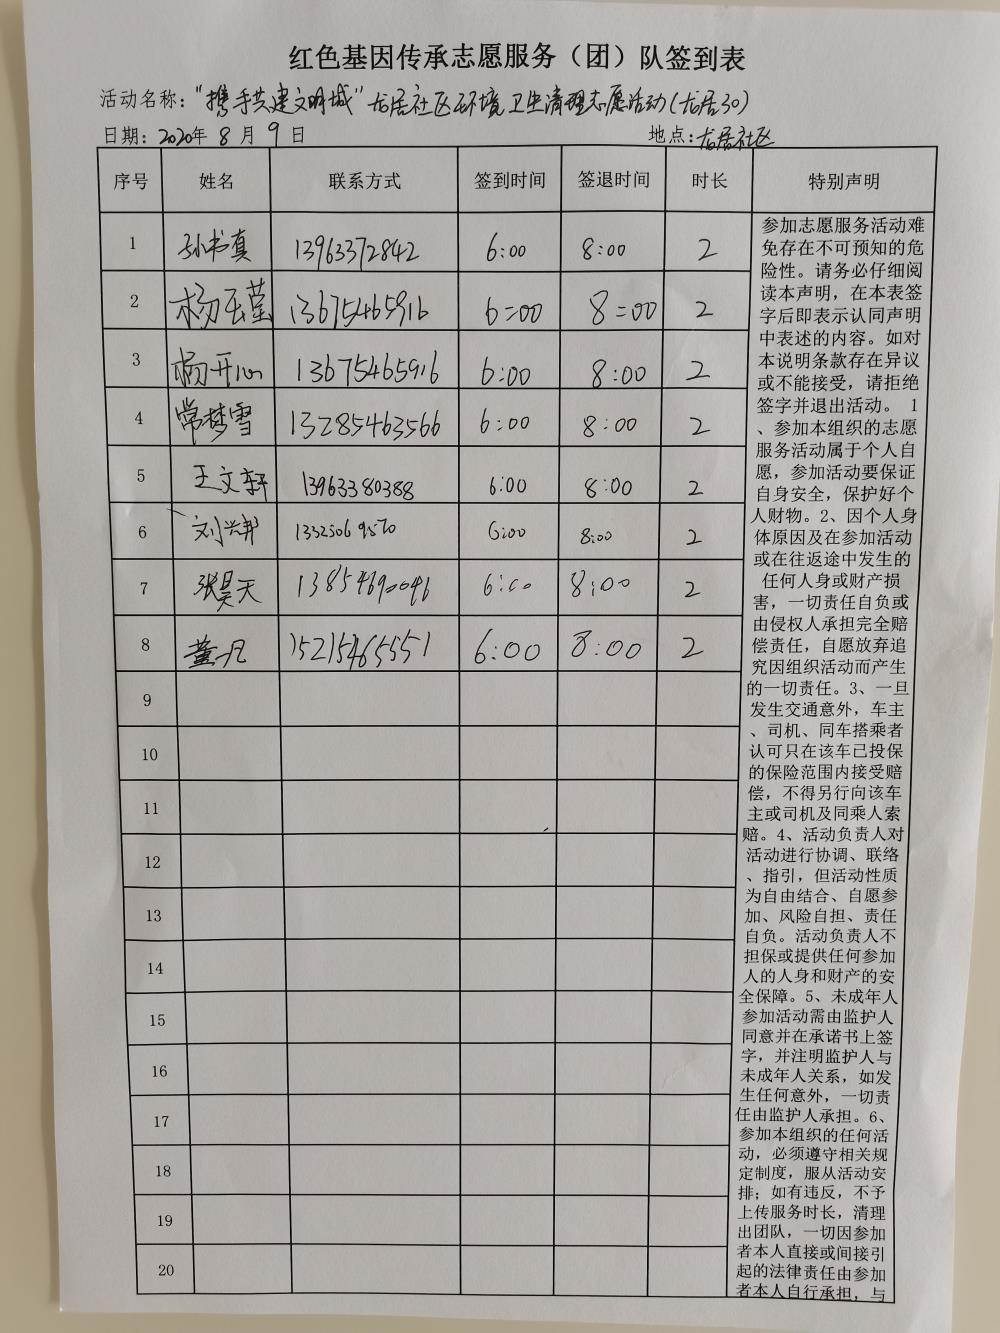 红色基因传承志愿服务（团）队签到表
活动名称："携手共建文明城"龙居社区环境卫生清理志愿活动(龙居30)
日期：2020年 8 月 9 日 地点：龙居社区
序号 姓名 联系方式 签到时间 签退时间 时长 特别声明
1 孙书真 13963372842 6:00 8:00 2
2 杨玉莹 13675465916 6:00 8:00 2
3 杨开心 13675465916 6:00 8:00 2
4 常梦雪 13285463566 6:00 8:00 2
5 王文轩 13963380388 6:00 8:00 2
6 刘兴邦 13325069570 6:00 8:00 2
7 张昊天 13854690046 6:00 8:00 2
8 董一凡 15215465551 6:00 8:00 2
9
10
11
12
13
14
15
16
17
18
19
20
参加志愿服务活动难
免存在不可预知的危
险性。请务必仔细阅
读本声明，在本表签
字后即表示认同声明
中表述的内容。如对
本说明条款存在异议
或不能接受，请拒绝
签字并退出活动。 1
、参加本组织的志愿
服务活动属于个人自
愿，参加活动要保证
自身安全，保护好个
人财物。2、因个人身
体原因及在参加活动
或在往返途中发生的
任何人身或财产损
害，一切责任自负或
由侵权人承担完全赔
偿责任，自愿放弃追
究因组织活动而产生
的一切责任。3、一旦
发生交通意外，车主
、司机、同车搭乘者
认可只在该车已投保
的保险范围内接受赔
偿，不得另行向该车
主或司机及同乘人索
赔。4、活动负责人对
活动进行协调、联络
、指引，但活动性质
为自由结合、自愿参
加、风险自担、责任
自负。活动负责人不
担保或提供任何参加
人的人身和财产的安
全保障。5、未成年人
参加活动需由监护人
同意并在承诺书上签
字，并注明监护人与
未成年人关系，如发
生任何意外，一切责
任由监护人承担。6、
参加本组织的任何活
动，必须遵守相关规
定制度，服从活动安
排；如有违反，不予
上传服务时长，清理
出团队，一切因参加
者本人直接或间接引
起的法律责任由参加
者本人自行承担，与